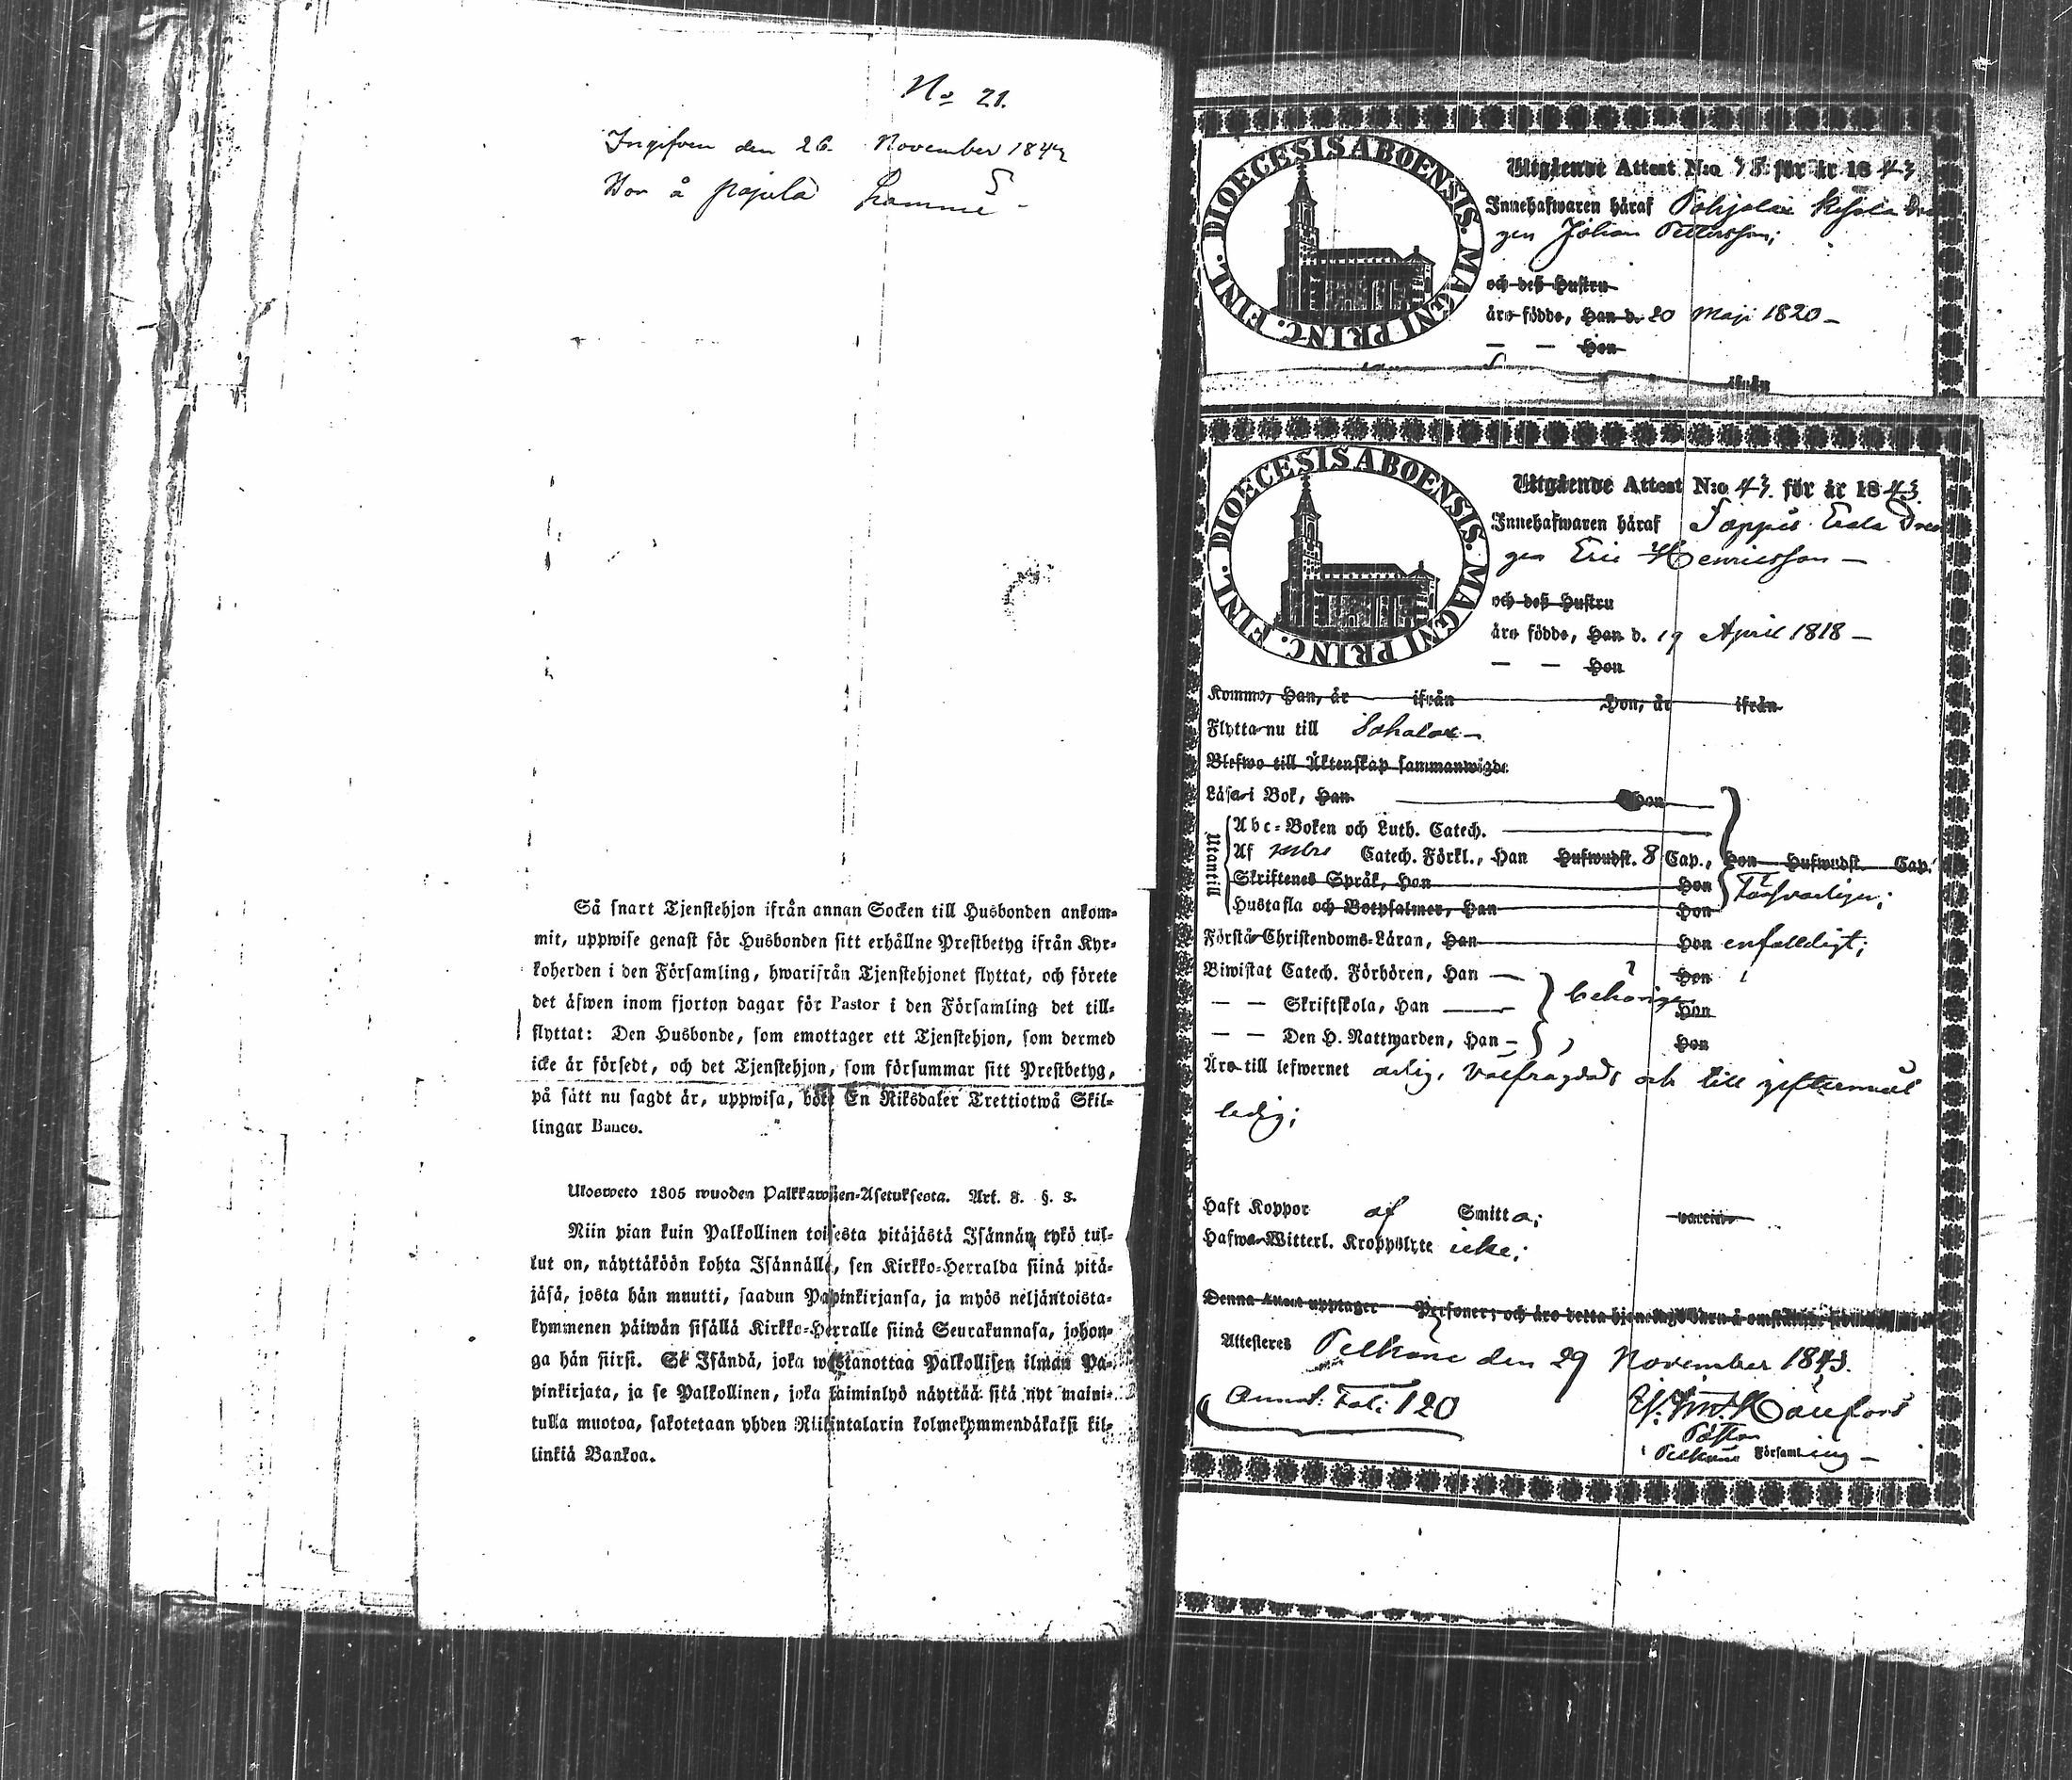 No 21.
Ingifven den 26. November 1843
Bor å
Så snart Tjenstehjon ifrån annan Socken till Husbonden ankom-
mit, uppwise genast för Husbonden sitt erhållne Prestbetyg ifrån Kyr-
koherden i den Församling, hwarifrån Tjenstehjonet flyttat, och förete
det äfwen inom fjorton dagar för Pastor i den Församling det till-
flyttat: Den Husbonde, som emottager ett Tjenstehjon, som dermed
icke är försedt, och det Tjenstehjon, som försummar sitt Prestbetyg,
på sätt nu sagdt är, uppwisa, böte En Riksdaler Trettiotwå Skil-
lingar Banco.
Ulosweto 1805 wuoden Palkkawäen-Asetuksesta. Art. 8. §. 3.
Niin pian kuin Palkollinen toisesta pitäjästä Isännän tykö tul-
lut on, näyttäköön kohta Isännälle, sen Kirkko-Herralda siinä pitä-
jäsä, josta hän muutti, saadun Papinkirjansa, ja myös neljäntoista-
kymmenen päiwän sisällä Kirkko-Herralle siinä Seurakunnasa, johon-
ga hän siirsi. Se Isändä, joka wastanottaa Palkollisen ilman Pa-
pinkirjata, ja se Palkollinen, joka laiminlyö näyttää sitä nyt maini-
tulla muotoa, sakotetaan yhden Riikintalarin kolmekymmendäkaksi kil-
linkiä Bankoa.
DIOECESIS ABOENSIS. MAGNI PRINC. FINL.
Utgående Attest N:o för år 1843
Innehafwaren häraf Pohjalax
gen Johan Pettersson;
och deß Hustru
äro födde, Han d. 20 Maji 1820 –
— — Hon
ifrån
DIOECESIS ABOENSIS. MAGNI PRINC. FINL.
Utgående Attest N:o 43. för år 1843.
Innehafwaren häraf Dren
gen Eric Henricsson –
och deß Hustru
äro födde, Han d. 19 April 1818 –
— — Hon
Kommo, Han, år ifrån Hon, år ifrån
Flytta nu till Sahalax –
Blefwo till Äktenskap sammanwigde
Läsa i Bok, Han Hon
Utantill
Abc-Boken och Luth. Catech.
Af Catech. Förkl., Han Hufwudst. 8 Cap., Hon Hufwudst. Cap.
Skriftenes Språk, Han Hon Försvarligen;
Hustafla och Botpsalmer, Han Hon
Förstå Christendoms-Läran, Han Hon enfaldigt;
Biwistat Catech. Förhören, Han Hon
— — Skriftskola, Han behörigen Hon
— — Den H. Nattwarden, Han Hon
Äro till lefwernet ärlig, välfrägdad och till giftermål
ledig;
Haft Koppor af Smitta; vaccine
Hafwa Witterl. Kroppslyte icke;
Denna Attest upptager Personer; och äro detta
Attesteres Pelkäne den 29 November 1843.
Annot: Fol: 120
Pastor
i Pelkäne Församling –